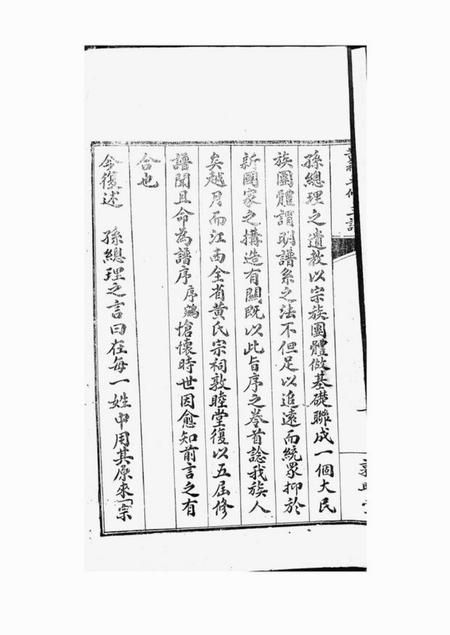 孫總理之遺教以宗族團體做基礎聯成一個大民
族團體謂明譜系之法不但足以追遠而統眾抑於
新國家之搆造有關既以此旨序之卷首諗我族人
矣越月而江南全省黃氏宗祠敦睦堂復以五屆修
譜聞且命為譜序序鵷愴懷時世因愈知前言之有
合也
今復述　孫總理之言曰在每一姓中用其原來「宗